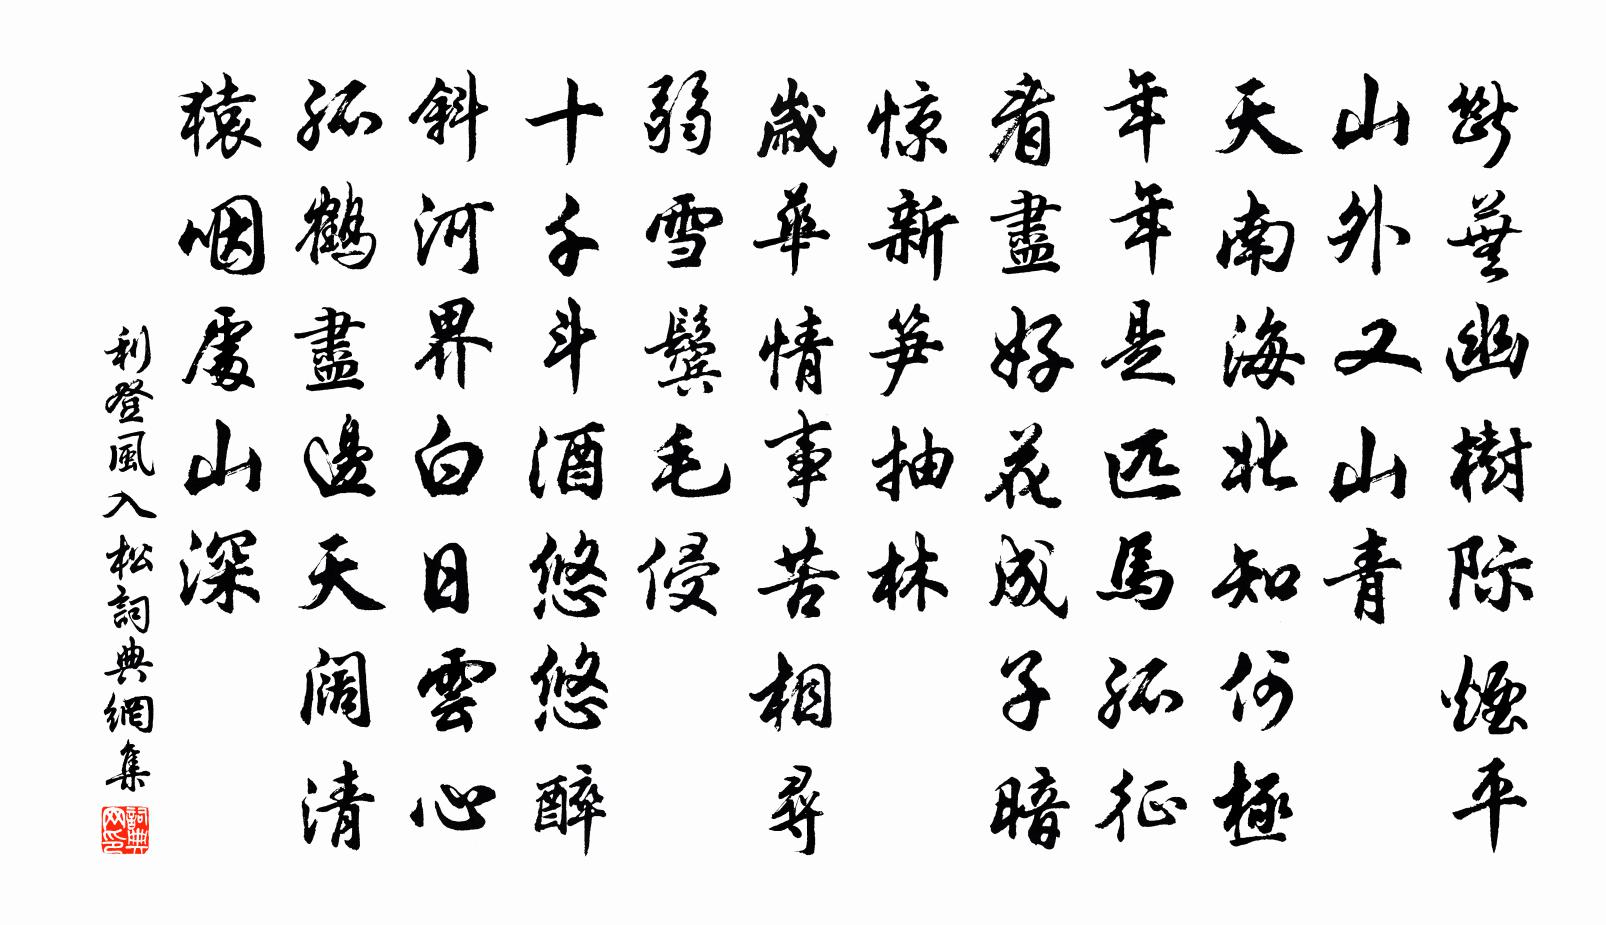 斷蕪幽樹際煙平
山外又山青
天南海北知何極
年年是匹馬孤征
看盡好花成子暗
惊新笋抽林
歲華情事苦相尋
弱雪鬢毛侵
十千斗酒悠悠醉
斜河界白日雲心
孤鶴盡邊天闊清
猿咽處山深
利登風入松詞典網集
詞典网印